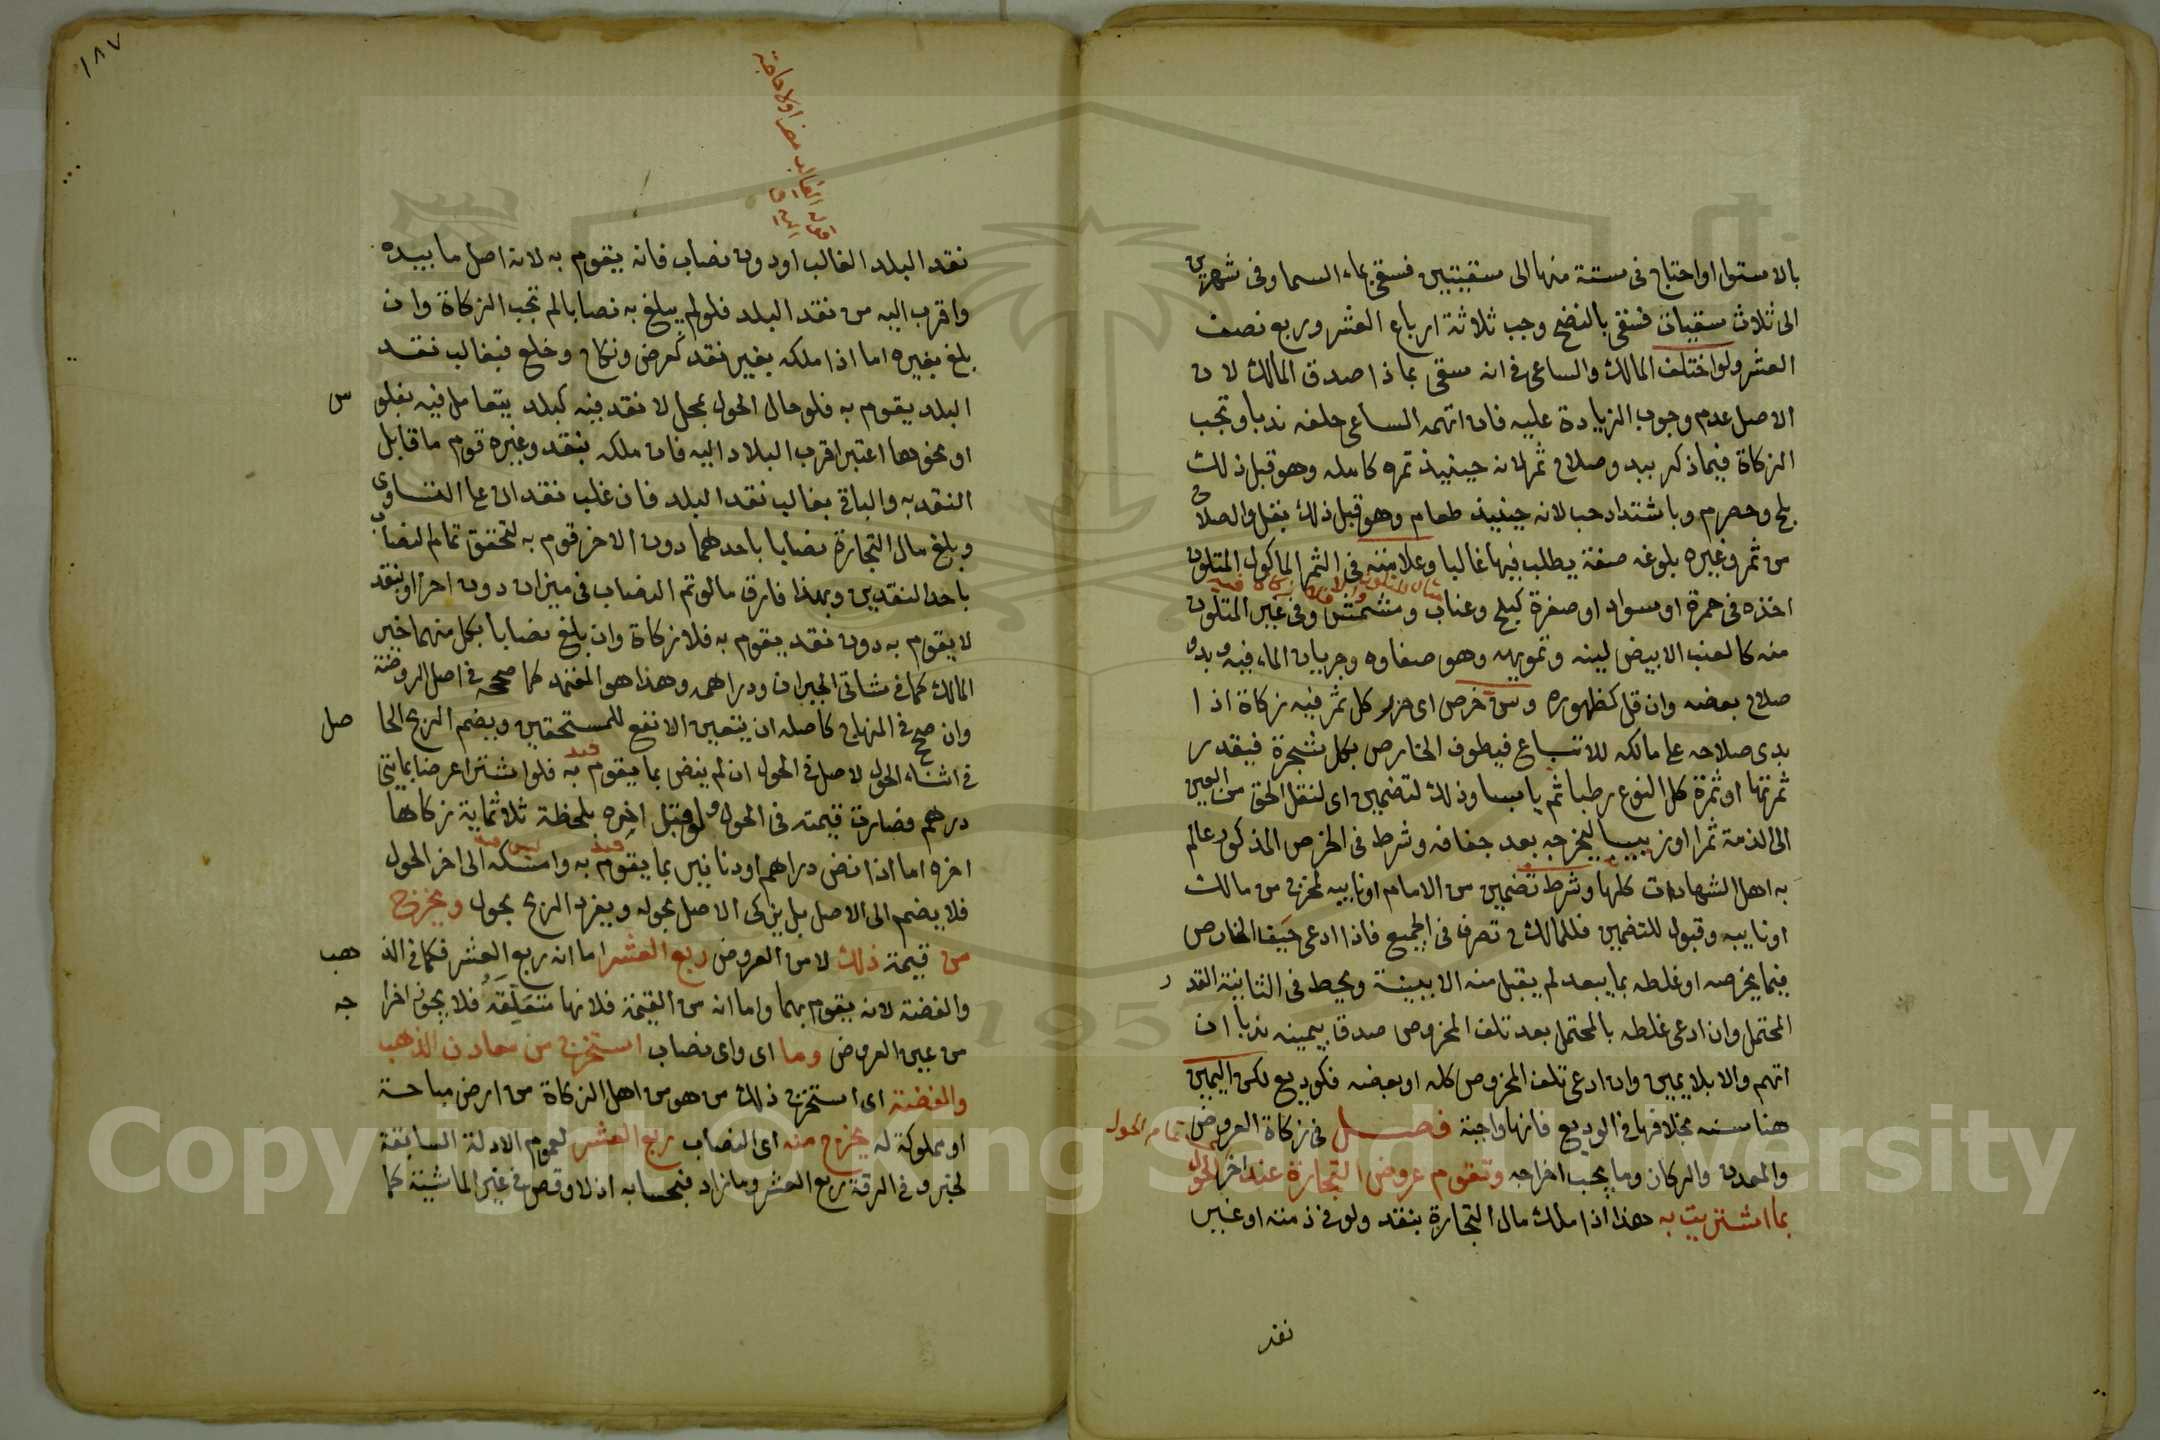 بالاستوا او احتاج في ستة منها الى سقيتين فسقي بماء السما وفي شهرين
الى ثلاث سقيات فسقي بالنضح وجب ثلاثة ارباع العشر وربع نصف
العشر ولو اختلف المالك والساعي في انه سقي بماذا صدق المالك لان
الاصل عدم وجوب الزيادة عليه فان اتهمه الساعي حلفه ندبا وتجب
الزكاة فيما ذكر ببدو صلاح ثمر لانه حينيذ ثمره كامله وهو قبل ذلك
بلح وحصرم وباشتداد حب لانه حينيذ طعام وهو قبل ذلك بقل والصلاح
من ثمر وغيره بلوغه صفة يطلب فيها غالبا وعلامته في الثمر الماكول المتلون
اخذه في حمرة او سواد او صفرة كبلح وعناب ومشمش وفي غير المتلون
منه كالعنب الابيض لينه وتمويهه وهو صفاوه وجريان الماء فيه وبدو
صلاح بعضه وان قل كظهوره وسن خرص اي حزر كل ثمر فيه زكاة اذا
بدى صلاحه على مالكه للاتباع فيطوف الخارص بكل شجرة فيقدر
ثمرتها او ثمرة كل النوع رطبا ثم يابسا وذلك لتضمين اي لنقل الحق من العين
الى الذمة ثمرا او زبيبا ليخرجه بعد جفافه وشرط في الخرص المذكور عالم
به اهل الشهادات كلها وشرط تضمين من الامام او نايبه لمخرج من مالك
او نايبه وقبول للتضمين فللمالك تصرف في الجميع فاذا ادعى حيف الخارص
فيما يخرصه او غلطه بما يبعد لم يقبل منه الا ببينة ويحط في الثانية القدر
المحتمل وان ادعى غلطه بالمحتمل بعد تلف المخروص صدق بيمينه ندبا ان
اتهم والا بلا يمين وان ادعى تلف المخروص كله او بعضه فكوديع لكن اليمين
هنا سنه بخلافها في الوديع فانها واجبة فصل في زكاة العروض
والمعدن والركاز وما يجب اخراجه وتقوم عروض التجارة عند اخر الحول
بما اشتريت به هذا اذا ملك مال التجارة بنقد ولو في ذمته او غير
تمام الحول
نقد
١٨٧
نقد البلد الغالب او دون نصاب فانه يقوم به لانه اصل ما بيده
واقرب اليه من نقد البلد فلو لم يبلغ به نصابا لم تجب الزكاة وان
بلغ بغيره اما اذا ملكه بغير نقد كعرض ونكاح وخلع فبغالب نقد
البلد يقوم به فلو حال الحول بمحل لا نقد فيه كبلد يتعامل فيه بفلوس
او نحوها اعتبر اقرب البلاد اليه فان ملكه بنقد وغيره قوم ما قابل
النقد به والباقي بغالب نقد البلد فان غلب نقدان على التساوي
وبلغ مال التجارة نصابا باحدهما دون الاخر قوم به لتحقق تمام النصاب
باحد النقدين وبهذا فارق ما لو تم النصاب في ميزان دون اخر او بنقد
لا يقوم به دون نقد يقوم به فلا زكاة وان بلغ نصابا بكل منهما خير
المالك كما في شاتي الجبران ودراهمه وهذا هو المعتمد كما صححه في اصل الروضة
وان صحح في المنهاج كاصله ان يتعين الانفع للمستحقين ويضم الربح الحاصل
في اثناء الحول لاصل في الحول ان لم ينض بما يقوم به فلو اشترا عرضا بمايتي
درهم فصارت قيمته في الحول ولو قبل اخره بلحظة ثلاثماية زكاها
اخره اما اذا نض دراهم او دنانير بما يقوم به وامسكه الى اخر الحول
فلا يضم الى الاصل بل يزكى الاصل بحوله ويفرد الربح بحول ويخرج
من قيمة ذلك لا من العروض ربع العشر اما انه ربع العشر فكما في الذهب
والفضة لانه يقوم بهما واما انه من القيمة فلانها متعلقه فلا يجوز اخراجه
من عين العروض وما اي واي نصاب استخرج من معادن الذهب
والفضة اي استخرج ذلك من هو من اهل الزكاة من ارض مباحة
او مملوكة له يخرج منه اي النصاب ربع العشر لعموم الادلة السابقة
لخبر وفي الرقة ربع العشر وما زاد فبحسابه اذ لا وقص في غير الماشية كما